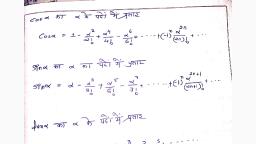 cosα का α के पदों में प्रसार
cosα = 1 - α²/2! + α⁴/4! - α⁶/6! + ...... + (-1)ⁿ α²ⁿ/(2n)! + ...
sinα का α का पदों में प्रसार
sinα = α - α³/3! + α⁵/5! - α⁷/7! + ...... + (-1)ⁿ α²ⁿ⁺¹/(2n+1)! + ...
tanα का α के पदों में प्रसार